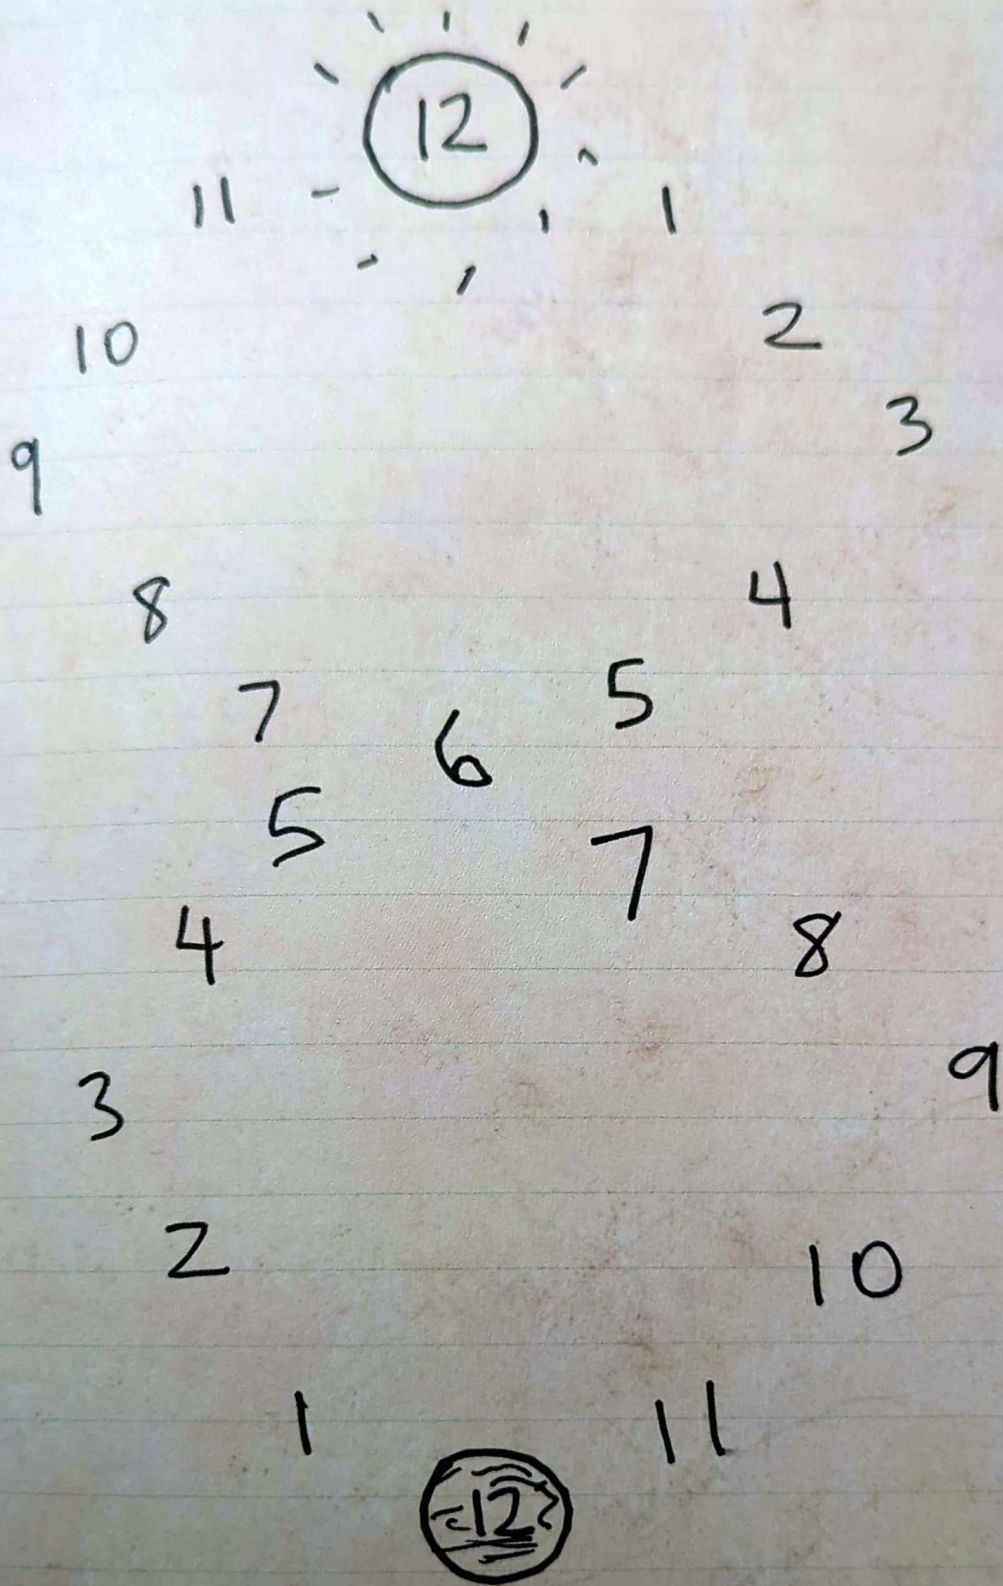 12
11 1
10 2
3
9
8 4
5
7
6
5
7
4 8
9
3
2
10
1 11
12